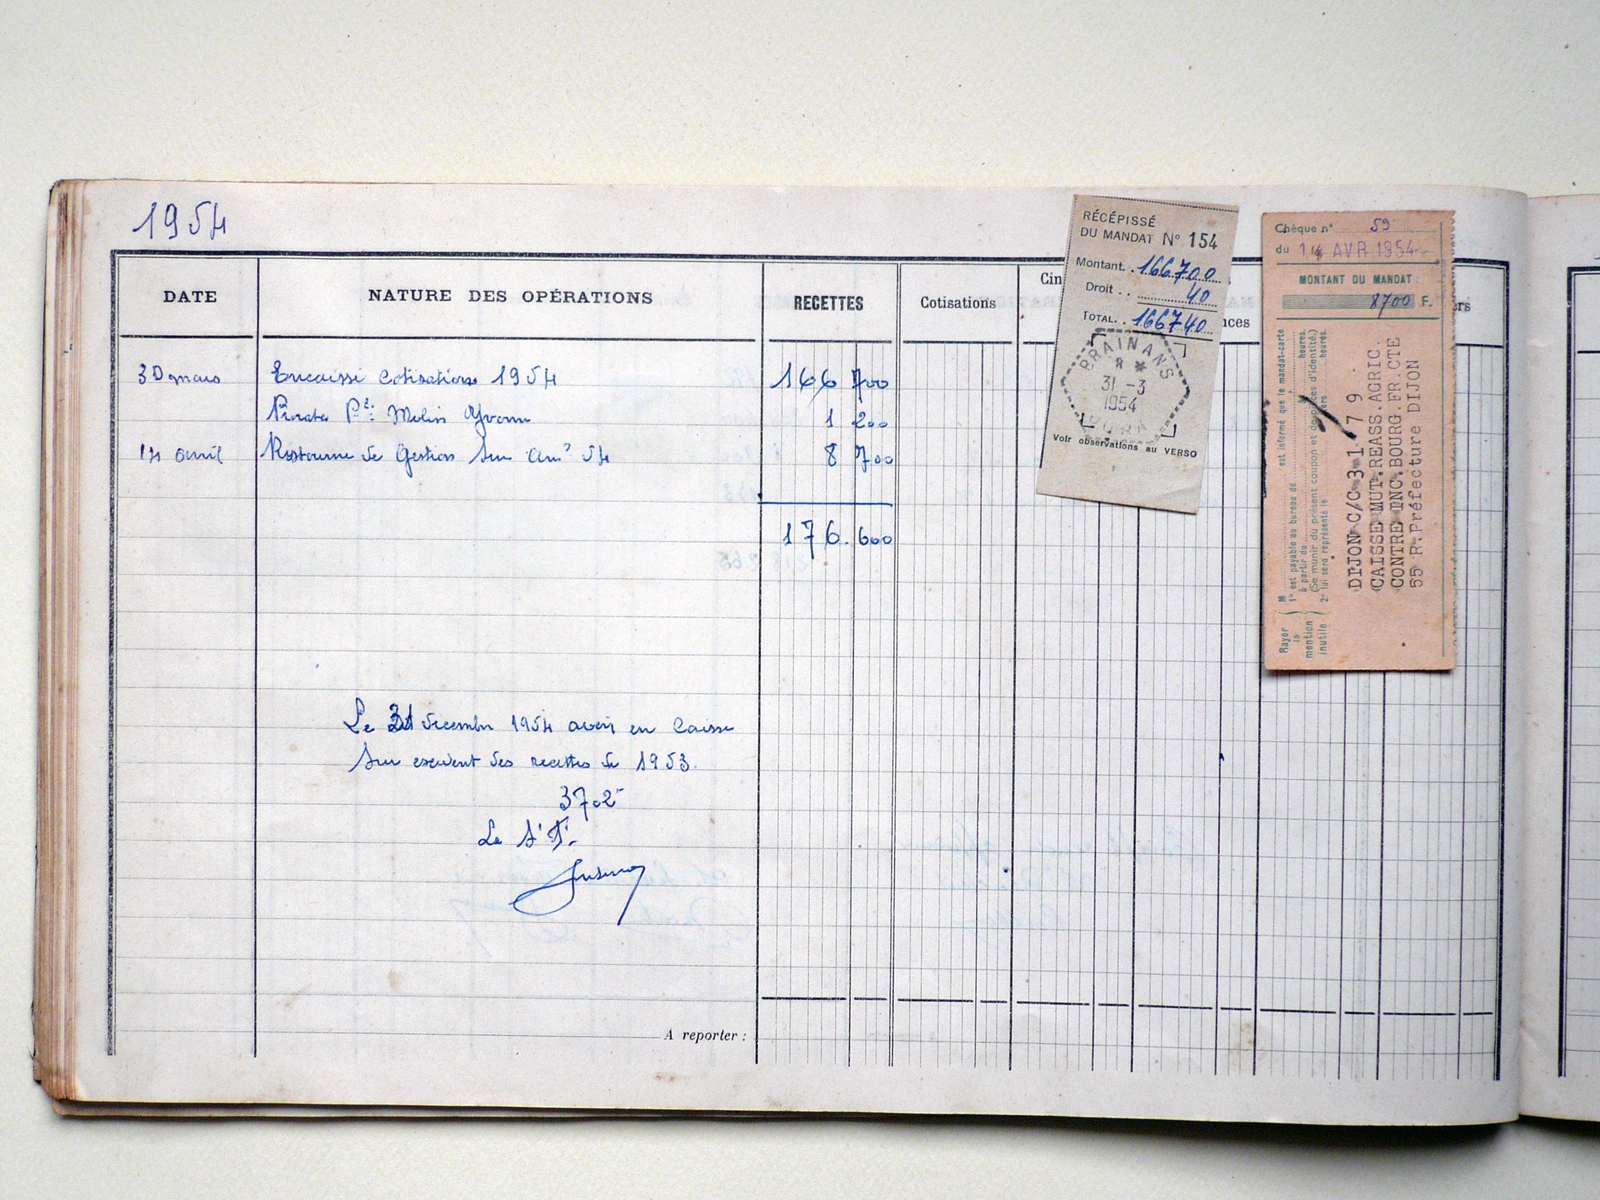 1954
DATE
NATURE DES OPÉRATIONS
RECETTES
Cotisations
Cin
nces
rs
30 mars Encaissé Cotisations 1954 166 700
Melin Yvonne 1 200
14 avril Ristourne de Gestion Sur 54 8 700
176.600
Le 31 décembre 1954 avoir en Caisse
Sur excédent des recettes de 1953.
3702
Le
A reporter :
RÉCÉPISSÉ
DU MANDAT N° 154
Montant. . 166.700
Droit . . 40
TOTAL. . 166740
BRAINANS
31 -3
1954
JURA
Voir observations au VERSO
Chèque n° 59
du 14 AVR 1954
MONTANT DU MANDAT :
8700 F.
Rayer
la
mention
inutile
M est informé que le mandat-carte
1° est payable au bureau de heures.
à partir du
(Se munir du présent coupon et de pièces d'identité.)
2° lui sera représenté le heures.
DIJON C/C 3-1 79
CAISSE MUT.REASS.AGRIC.
CONTRE INC.BOURG.FR.CTE
55 R.Préfecture DIJON